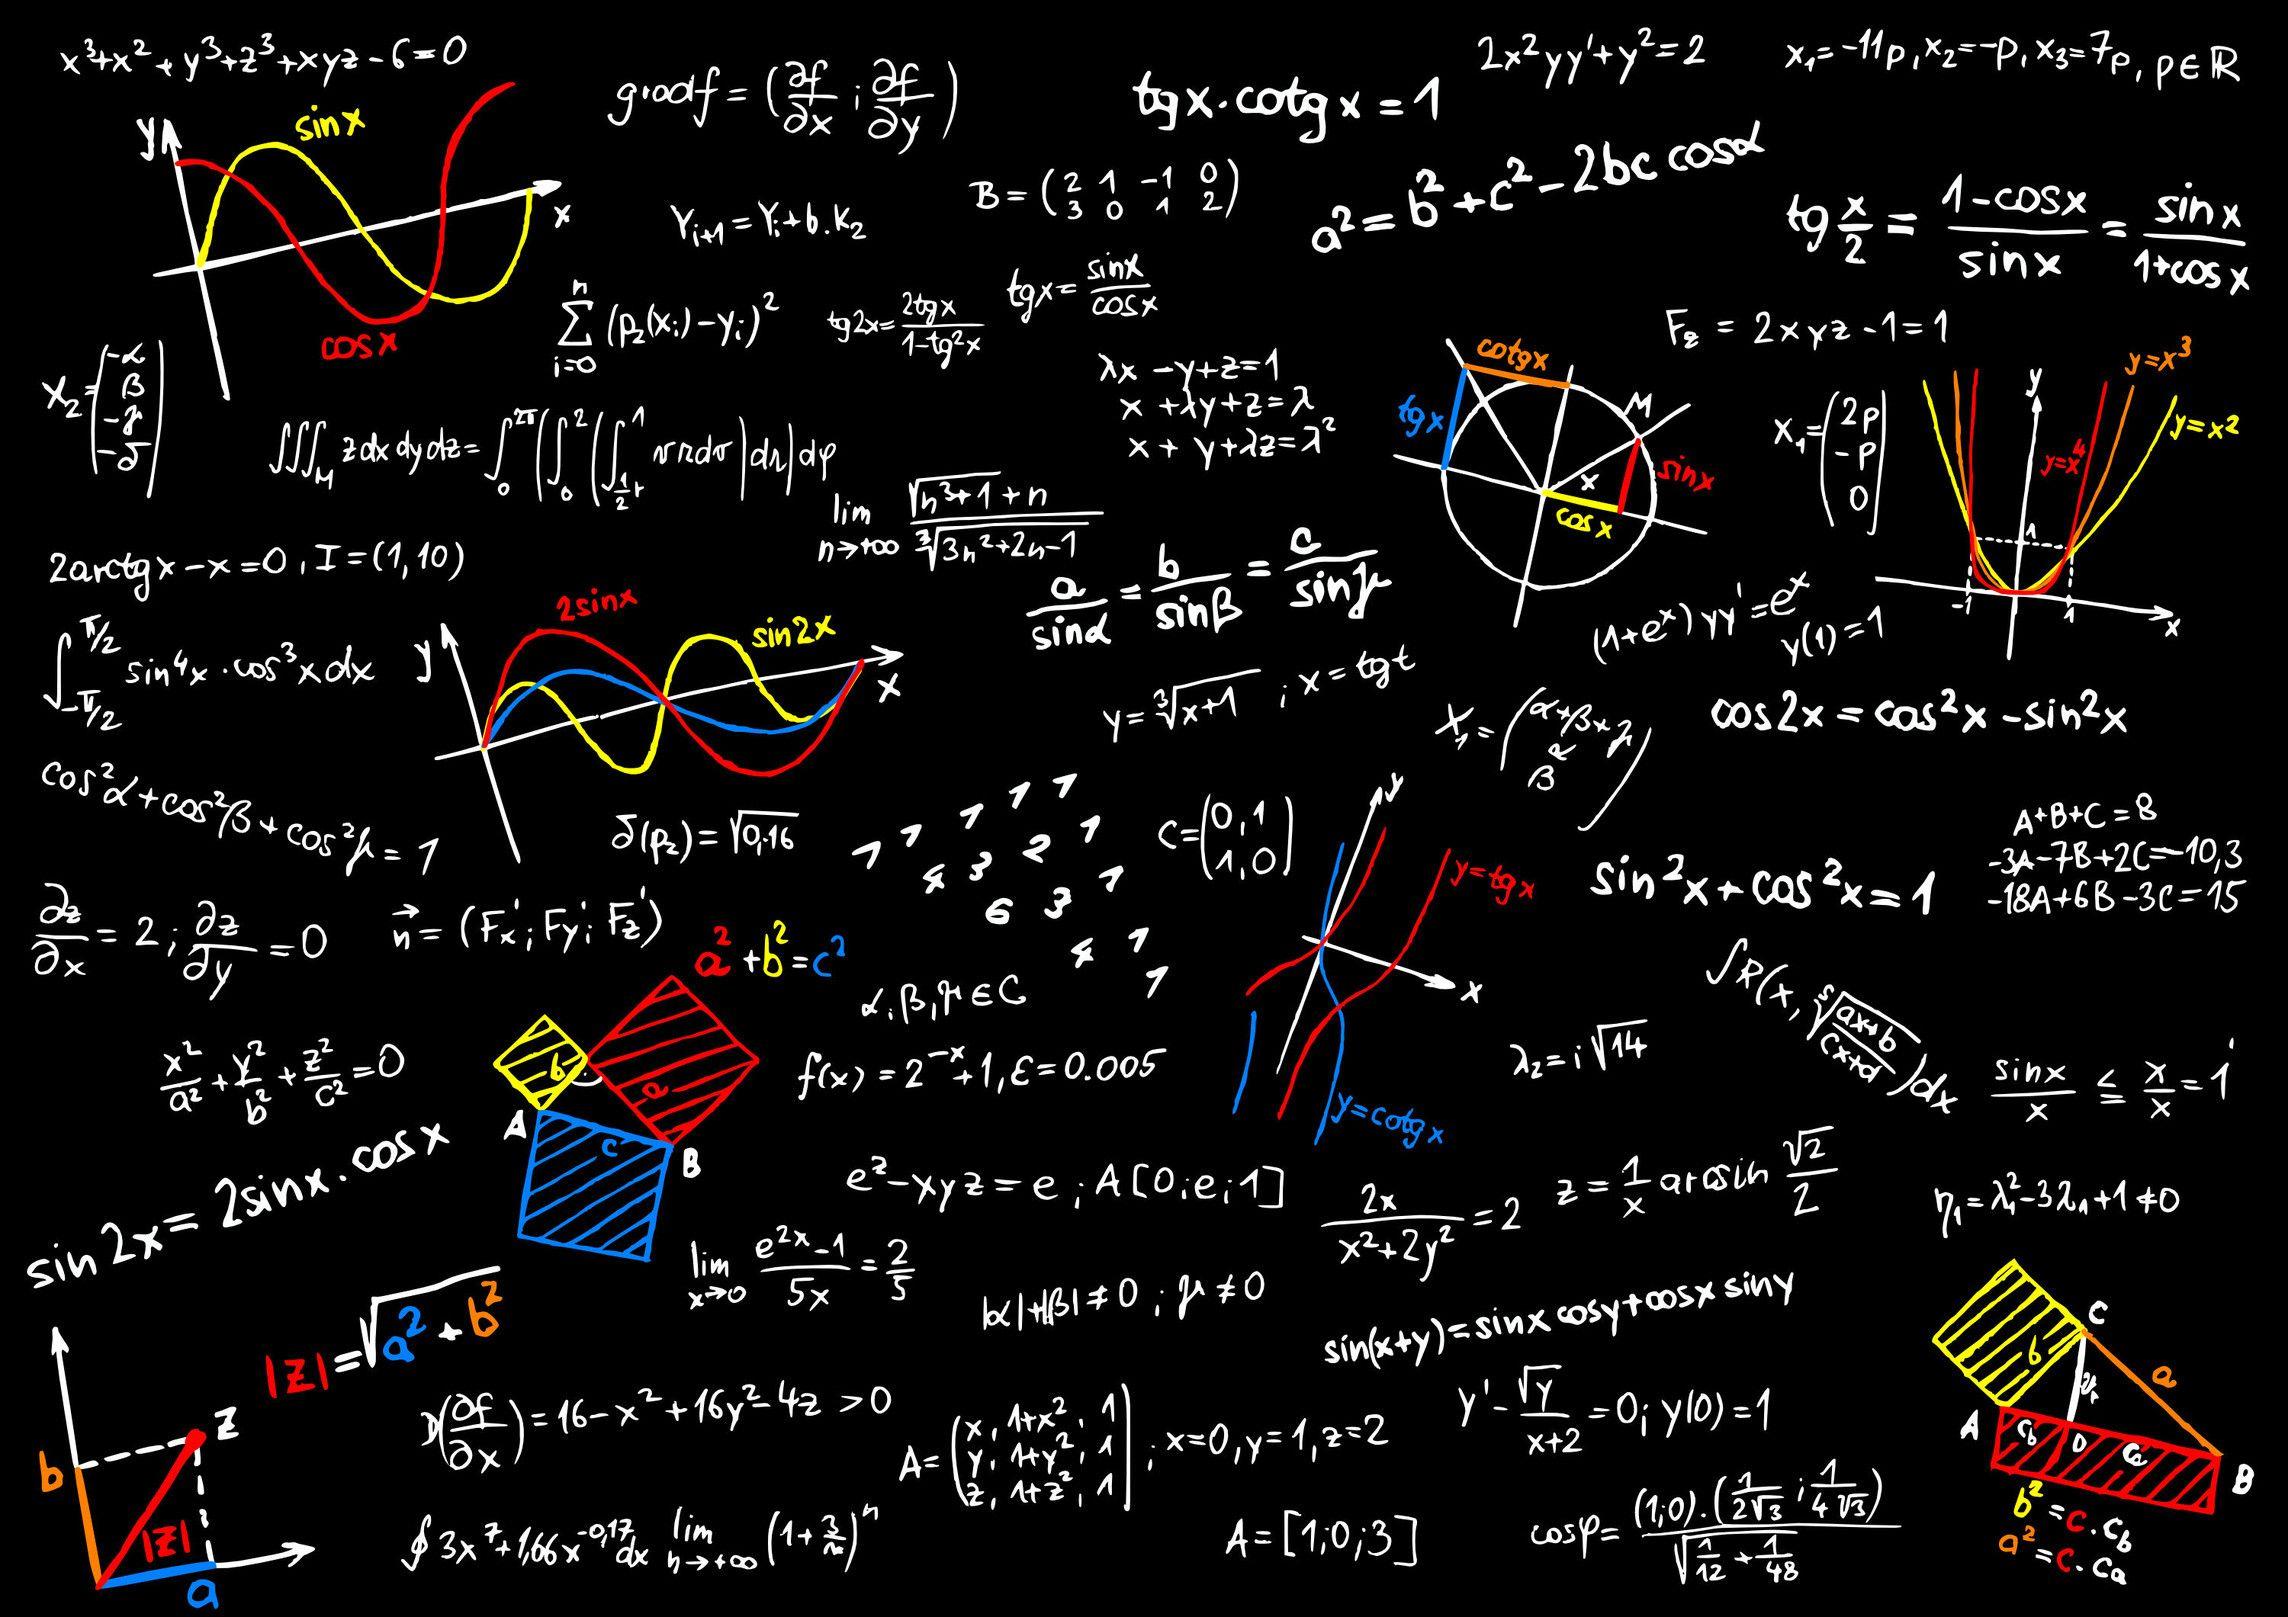 x³+x²+y³+z³+xyz-6=0
gradf = (∂f/∂x ; ∂f/∂y)
tgx·cotgx=1
2x²yy'+y²=2
x₁=-11p, x₂=-p, x₃=7p, p∈ℝ
y
sinx
x
cosx
Y_{i+1}=Y_i+b.K₂
B=(2 1 -1 0
3 0 1 2)
a²=b²+c²-2bc cosα
tg x/2 = (1-cosx)/sinx = sinx/(1+cosx)
∑_{i=0}^{n} (p₂(x_i)-y_i)²
tg2x=2tgx/(1-tg²x)
tgx=sinx/cosx
F_z = 2xyz-1=1
X₂=(-α
β
-γ
-δ)
λx-y+z=1
x+λy+z=λ
x+y+λz=λ²
cotgx
tgx
M
sinx
x
cosx
X₁=(2p
-p
0)
y
y=x³
y=x²
y=x⁴
1
-1
1
x
∫∫∫_M zdxdydz=∫₀^{2π}(∫₀²(∫_{½r}^1
lim_{n→+∞} (√(n³+1)+n)/∛(3n²+2n-1)
2arctgx-x=0, I=(1,10)
a/sinα = b/sinβ = c/sinγ
(1+eˣ)yy'=eˣ
y(1)=1
∫_{-π/2}^{π/2} sin⁴x·cos³xdx
y
2sinx
sin2x
x
y=∛(x+1) ; x=tgt
X₁=(α+β+γ
α
β)
cos2x=cos²x-sin²x
cos²α+cos²β+cos²γ=1
δ(p₂)=√0,16
1 1 1 1 1
4 3 2 1
6 3 1
4 1
1
C=(0,1
1,0)
y
y=tgx
x
y=cotgx
A+B+C=8
-3A-7B+2C=-10,3
-18A+6B-3C=15
sin²x+cos²x=1
∂z/∂x=2; ∂z/∂y=0
n⃗=(F'x; F'y; F'z)
a²+b²=c²
b
a
A
c
B
α,β,γ∈C
∫R(x, ⁵√((ax+b)/(cx+d)))dx
x²/a²+y²/b²+z²/c²=0
f(x)=2⁻ˣ+1, ε=0.005
λ₂=i√14
sinx/x ≤ x/x = 1
sin2x=2sinx·cosx
e^z-xyz=e; A[0;e;1]
2x/(x²+2y²)=2
z=1/x arcsin √2/2
η₁=λ₁²-3λ₁+1≠0
lim_{x→0} (e^{2x}-1)/5x=2/5
|α|+|β|≠0 ; γ≠0
sin(x+y)=sinx cosy+cosx siny
|z|=√(a²+b²)
z
b
|z|
a
D(∂f/∂x)=16-x²+16y²-4z>0
A=(x, 1+x², 1
y, 1+y², 1
z, 1+z², 1) ; x=0, y=1, z=2
y'-√y/(x+2)=0; y(0)=1
C
b
a
A
c_b
D
c_a
B
b²=c·c_b
a²=c·c_a
∮3x⁷+1,66x^{-0,17}dx
lim_{n→+∞} (1+3/n)ⁿ
A=[1;0;3]
cosφ=(1;0).(1/(2√3);1/(4√3))/√(1/12+1/48)